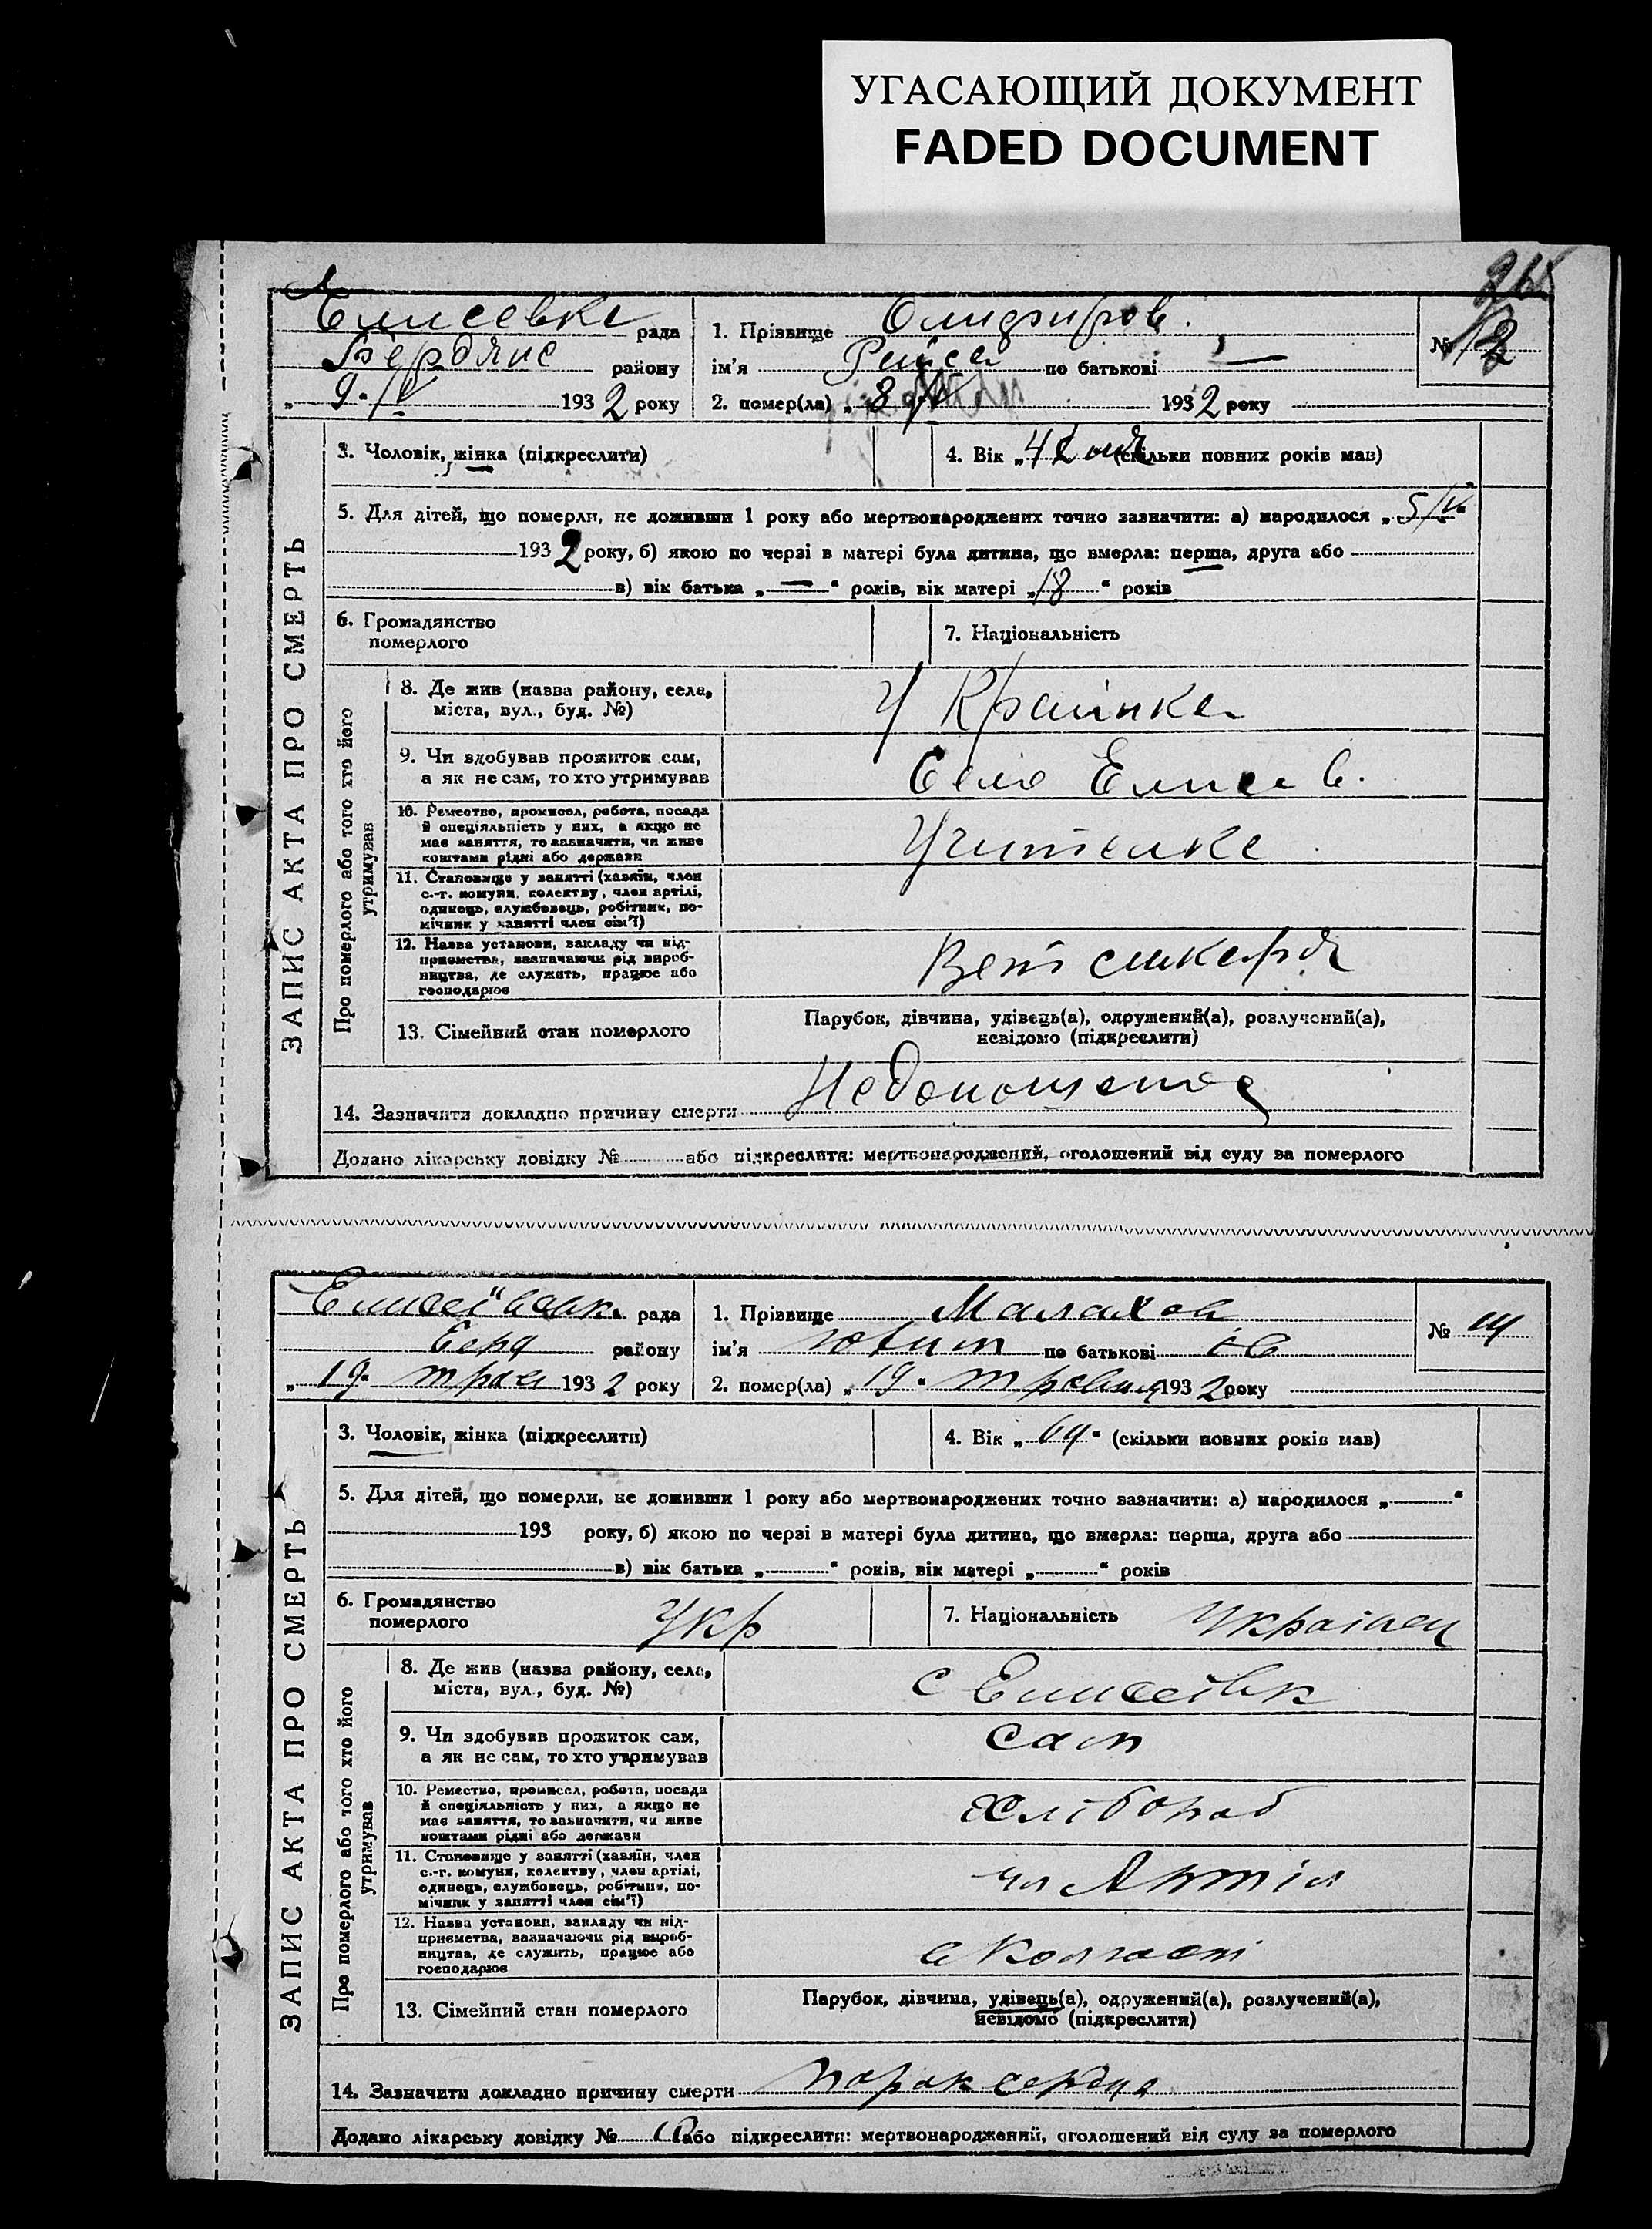 УГАСАЮЩИЙ ДОКУМЕНТ
FADED DOCUMENT
Елисевка рада
1. Прізвище Олифиров
№ 12
Бердянс району
ім'я Раиса по батькові —
„ 9 " IV 1932 року
2. помер(ла) „ 8 1932 року
ЗАПИС АКТА ПРО СМЕРТЬ
3. Чоловік, жінка (підкреслити)
4. Вік „ 4 дня (скільки повних років мав)
5. Для дітей, що померли, не доживши 1 року або мертвонароджених точно зазначити: а) народилося „ 5/IV "
1932 року, б) якою по черзі в матері була дитина, що вмерла: перша, друга або
в) вік батька „ — " років, вік матері „ 18 " років
6. Громадянство
померлого
7. Національність
Про померлого або того хто його
утримував
8. Де жив (назва району, села,
міста, вул., буд. №)
Українка
9. Чи здобував прожиток сам,
а як не сам, то хто утримував
Село Елисев.
10. Ремество, промисел, робота, посада
й спеціяльність у них, а якщо не
має заняття, то зазначити, чи живе
коштами рідні або держави
Учителка
11. Становище у занятті (хазяїн, член
с.-г. комуни, колектву, член артілі,
одинець, службовець, робітник, по-
мічник у занятті член сім'ї)
12. Назва установи, закладу чи під-
приємства, зазначаючи рід вироб-
ництва, де служить, працює або
господарює
13. Сімейний стан померлого
Парубок, дівчина, удівець(а), одружений(а), розлучений(а),
невідомо (підкреслити)
14. Зазначити докладно причину смерти Недоношеная
Додано лікарську довідку № або підкреслити: мертвонароджений, оголошений від суду за померлого
Елисеївськ. рада
1. Прізвище Малахов
№ 14
Берд району
ім'я Юхим по батькові
„ 19 " трав 1932 року
2. помер(ла) „ 19 " травня 1932 року
ЗАПИС АКТА ПРО СМЕРТЬ
3. Чоловік, жінка (підкреслити)
4. Вік „ 64 " (скільки повних років мав)
5. Для дітей, що померли, не доживши 1 року або мертвонароджених точно зазначити: а) народилося „ "
193 року, б) якою по черзі в матері була дитина, що вмерла: перша, друга або
в) вік батька „ " років, вік матері „ " років
6. Громадянство
померлого
Укр
7. Національність Українец
Про померлого або того хто його
утримував
8. Де жив (назва району, села,
міста, вул., буд. №)
с Елисеївк
9. Чи здобував прожиток сам,
а як не сам, то хто утримував
Сам
10. Ремество, промисел, робота, посада
й спеціяльність у них, а якщо не
має заняття, то зазначити, чи живе
коштами рідні або держави
Хлібороб
11. Становище у занятті (хазяїн, член
с.-г. комуни, колектву, член артілі,
одинець, службовець, робітник, по-
мічник у занятті член сім'ї)
чл Артіл
12. Назва установи, закладу чи під-
приємства, зазначаючи рід вироб-
ництва, де служить, працює або
господарює
в Колгоспі
13. Сімейний стан померлого
Парубок, дівчина, удівець(а), одружений(а), розлучений(а),
невідомо (підкреслити)
14. Зазначити докладно причину смерти порок сердця
Додано лікарську довідку № або підкреслити: мертвонароджений, оголошений від суду за померлого